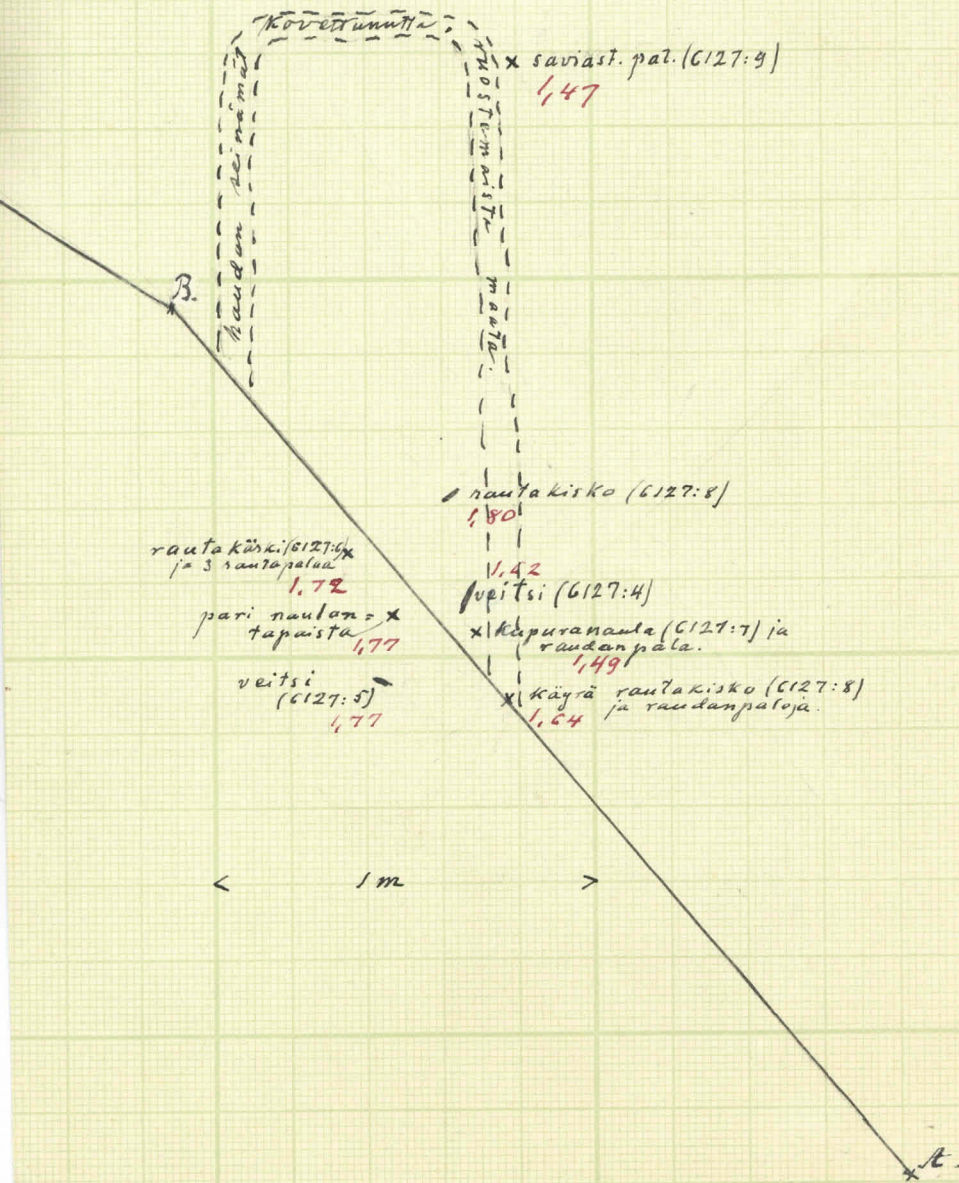 kovettunutta,
ruostemaista maata.
haudan seinämät
saviast. pal. (6127:9)
1,47
B.
rautakisko (6127:8)
1,80
rautakärki (6127:6)
ja 3 rautapalaa
1,72
1,42
veitsi (6127:4)
pari naulan=
tapaista
1,77
Kupuranaula (6127:7) ja
raudanpala.
1,49
veitsi
(6127:5)
1,77
Käyrä rautakisko (6127:8)
ja raudanpaloja.
1,64
< 1 m >
A.